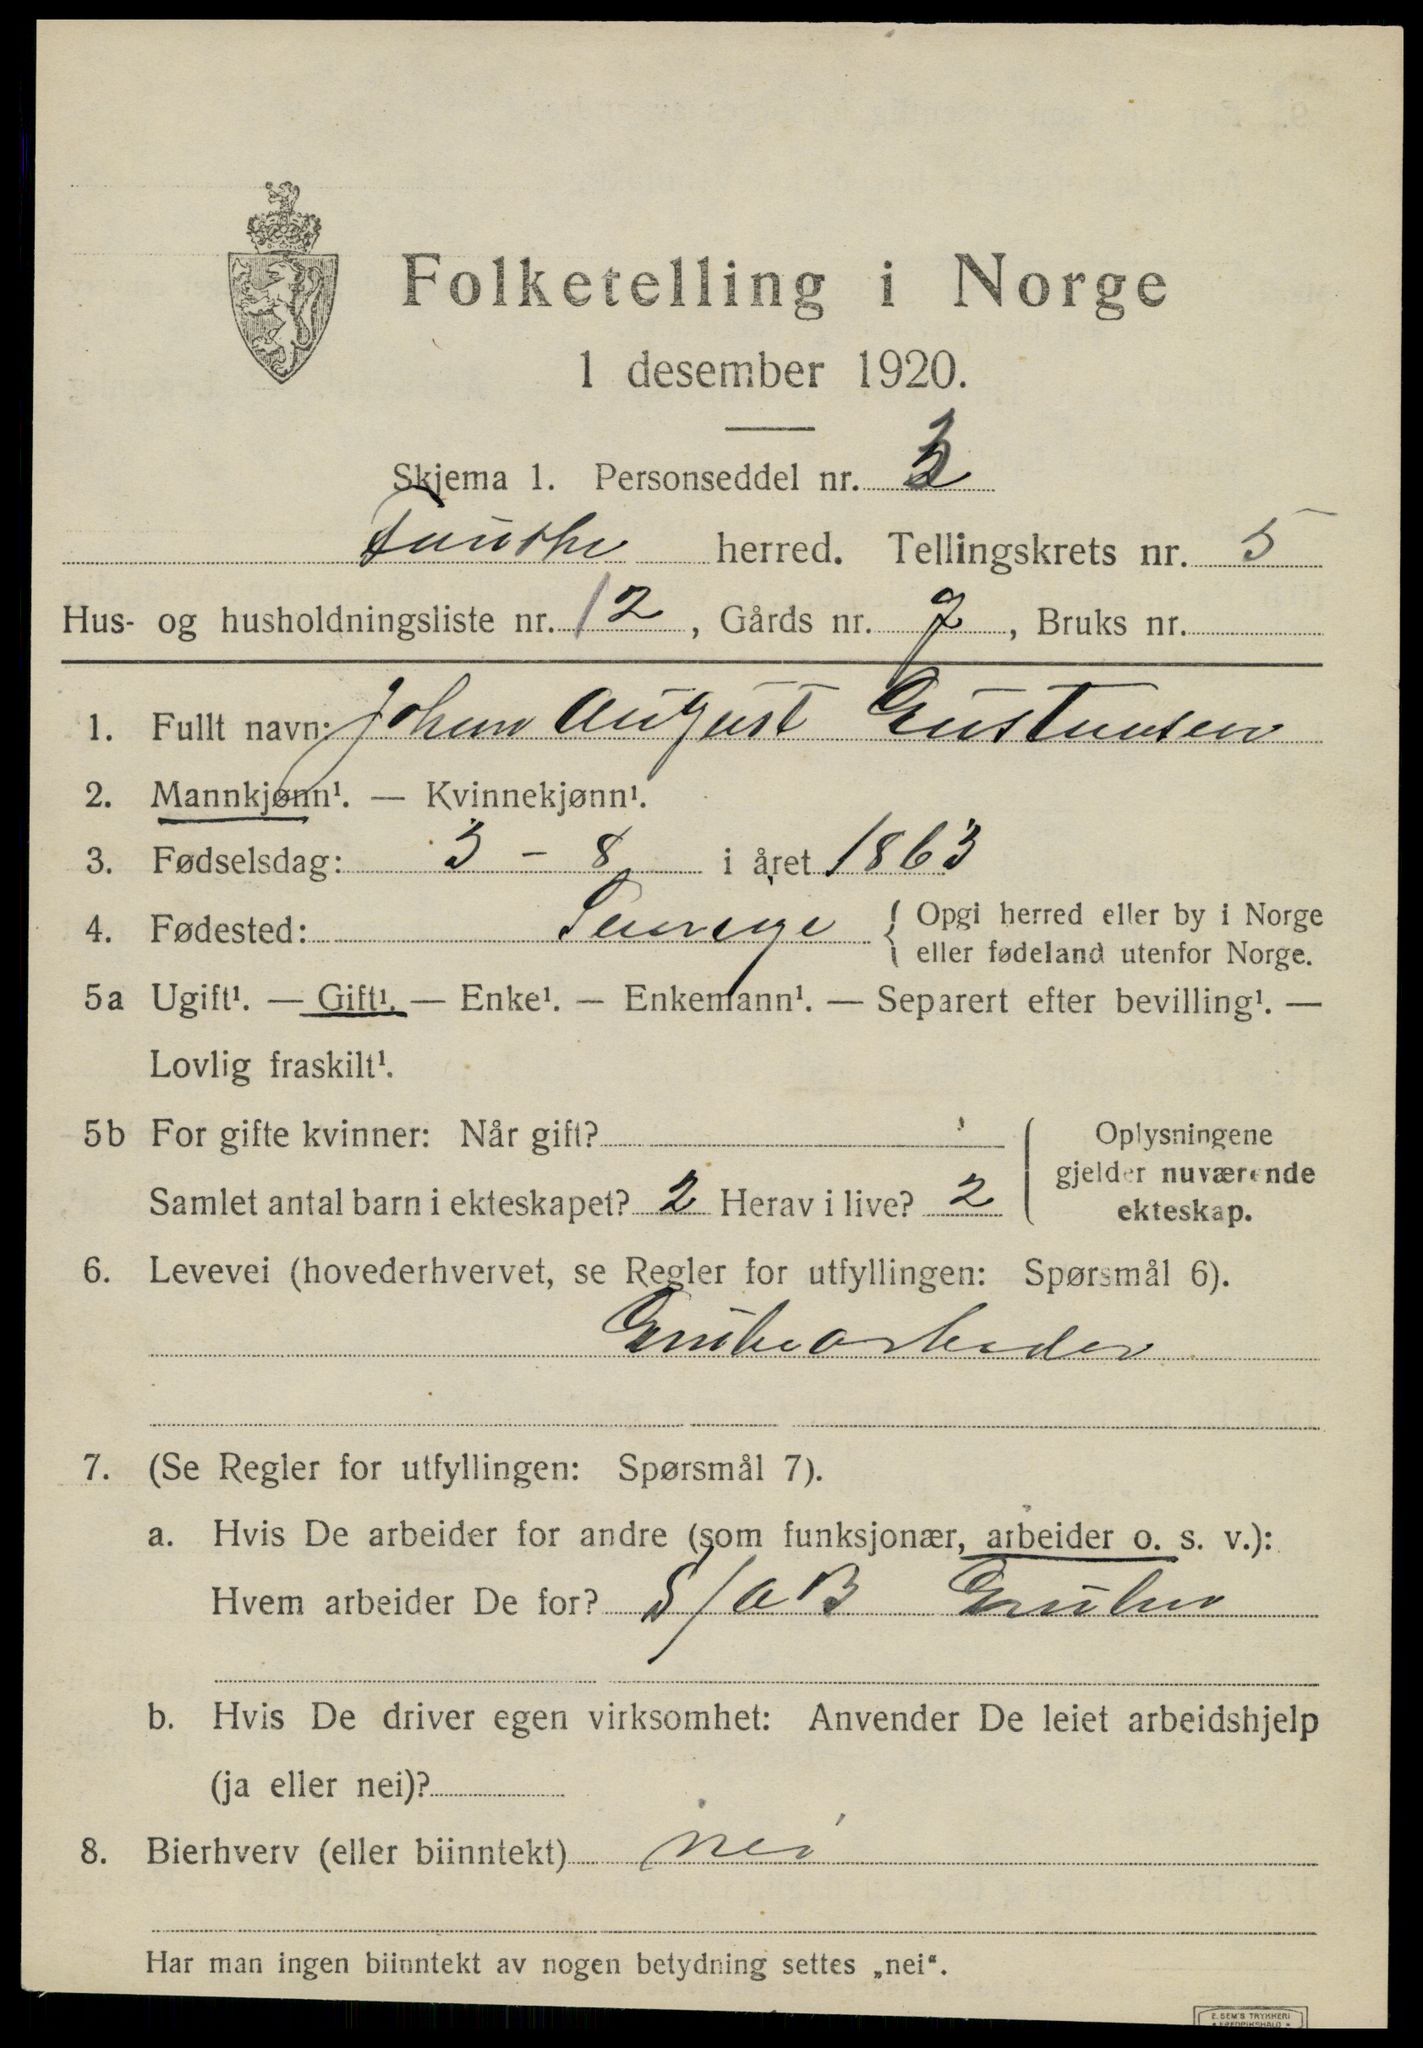 Folketelling i Norge
1 desember 1920.
Skjema 1. Personseddel nr. 3
Fauske herred. Tellingskrets nr. 5
Hus- og husholdningsliste nr. 12, Gårds nr. 7, Bruks nr.
1. Fullt navn: Johan August Gustavsen
2. Mannkjønn¹. — Kvinnekjønn¹.
3. Fødselsdag: 3 - 8 i året 1863
4. Fødested: Sverige { Opgi herred eller by i Norge
eller fødeland utenfor Norge.
5a Ugift¹. — Gift¹. — Enke¹. — Enkemann¹. — Separert efter bevilling¹. —
Lovlig fraskilt¹.
5b For gifte kvinner: Når gift?
Samlet antal barn i ekteskapet? 2 Herav i live? 2
Oplysningene
gjelder nuværende
ekteskap.
6. Levevei (hovederhvervet, se Regler for utfyllingen: Spørsmål 6).
Grubearbeider
7. (Se Regler for utfyllingen: Spørsmål 7).
a. Hvis De arbeider for andre (som funksjonær, arbeider o. s. v.):
Hvem arbeider De for? S/AB Gruber
b. Hvis De driver egen virksomhet: Anvender De leiet arbeidshjelp
(ja eller nei)?
8. Bierhverv (eller biinntekt) nei
Har man ingen biinntekt av nogen betydning settes „nei“.
E. SEM'S TRYKKERI
FREDRIKSHALD